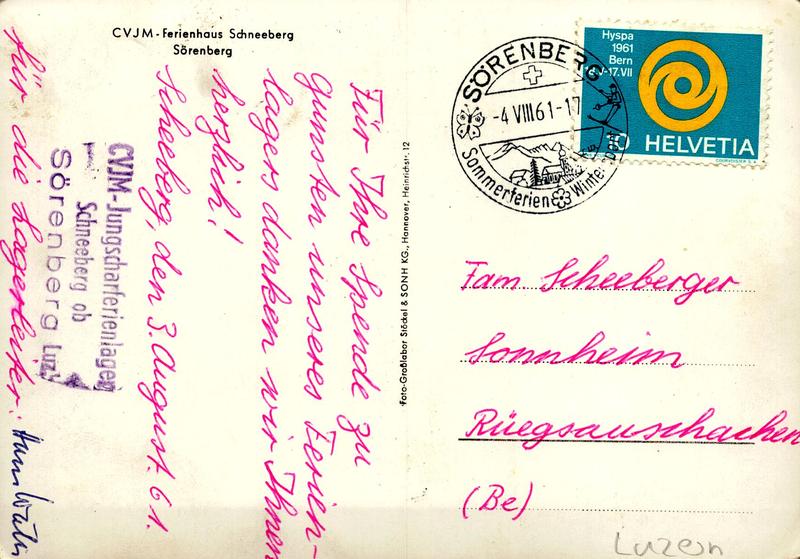 CVJM-Ferienhaus Schneeberg
Sörenberg
Für Ihre Spende zu
gunsten unseres Ferien-
lagers danken wir Ihnen
herzlich!
Scheeberg, den 3. August. 61.
CVJM-Jungscharferienlager
Schneeberg ob
Sörenberg Luz.
für die Lagerleiter:
Foto-Großlabor Stöckel & SOHN KG., Hannover, Heinrichstr. 12
SÖRENBERG
-4 VIII 61-17
Sommerferien Wintersport
Hyspa
1961
Bern
-17.VII
10
HELVETIA
COURVOISIER S.A.
Fam Scheeberger
Sonnheim
Rüegsauschachen
(Be)
Luzern